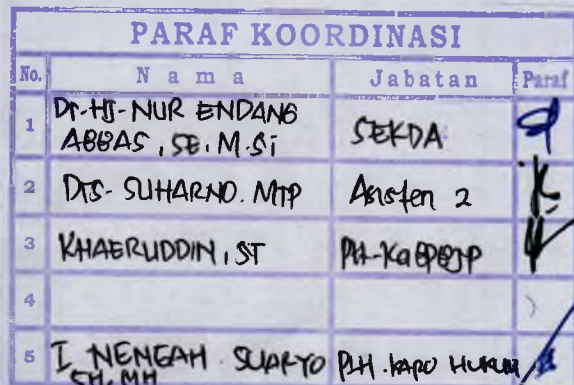 PARAF KOORDINASI
No. Nama Jabatan Paraf
1 Dr. Hj. NUR ENDANG
ABBAS, SE, M.Si SEKDA
2 Drs. SUHARNO. MTP Asisten 2
3 KHAERUDDIN, ST
4
5 I NENGAH SUARYO PLH. KARO HUKUM
SH, MH